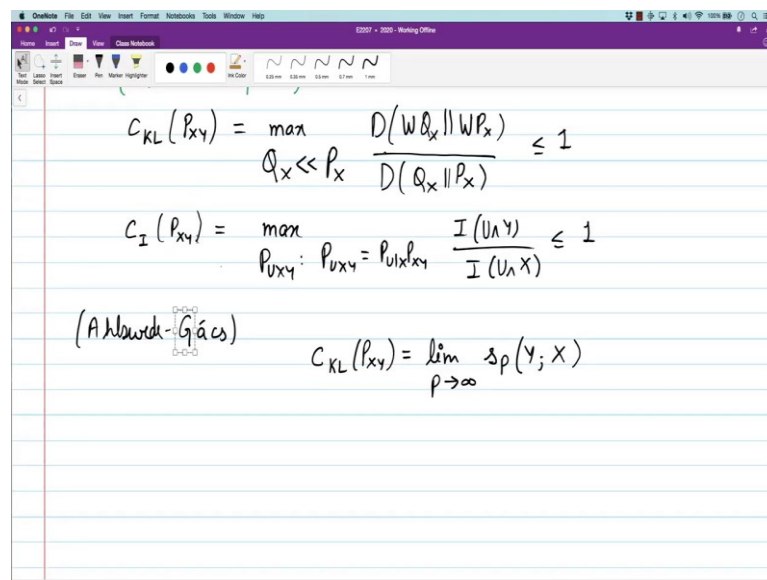 OneNote File Edit View Insert Format Notebooks Tools Window Help
100%
E2207 • 2020 - Working Offline
Home Insert Draw View Class Notebook
Text Mode Lasso Select Insert Space Eraser Pen Marker Highlighter Ink Color 0.25 mm 0.35 mm 0.5 mm 0.7 mm 1 mm
C_KL (P_XY) = max_{Q_X << P_X} D(WQ_X || WP_X) / D(Q_X || P_X) ≤ 1
C_I (P_XY) = max_{P_UXY : P_UXY = P_U|X P_XY} I(U∧Y) / I(U∧X) ≤ 1
(Ahlswede-Gács)
C_KL (P_XY) = lim_{p→∞} s_p (Y; X)